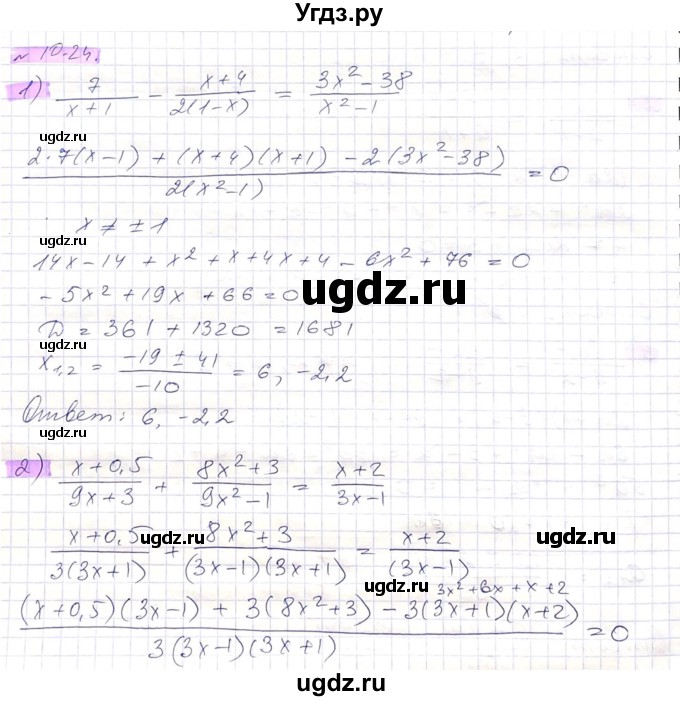 Угдз.ру
№ 10.24.
1) 7/(x+1) - (x+4)/(2(1-x)) = (3x²-38)/(x²-1)
ugdz.ru
(2·7(x-1) + (x+4)(x+1) - 2(3x²-38))/(2(x²-1)) = 0
x ≠ ±1
14x-14 + x² + x + 4x + 4 - 6x² + 76 = 0
-5x² + 19x + 66 = 0
ugdz.ru
D = 361 + 1320 = 1681
ugdz.ru
x₁,₂ = (-19 ± 41)/(-10) = 6, -2,2
Ответ: 6, -2,2
ugdz.ru
2) (x+0,5)/(9x+3) + (8x²+3)/(9x²-1) = (x+2)/(3x-1)
ugdz.ru
ugdz.ru
(x+0,5)/(3(3x+1)) + (8x²+3)/((3x-1)(3x+1)) = (x+2)/(3x-1)
ugdz.ru
3x²+6x+x+2
((x+0,5)(3x-1) + 3(8x²+3) - 3(3x+1)(x+2))/(3(3x-1)(3x+1)) = 0
ugdz.ru
ugdz.ru